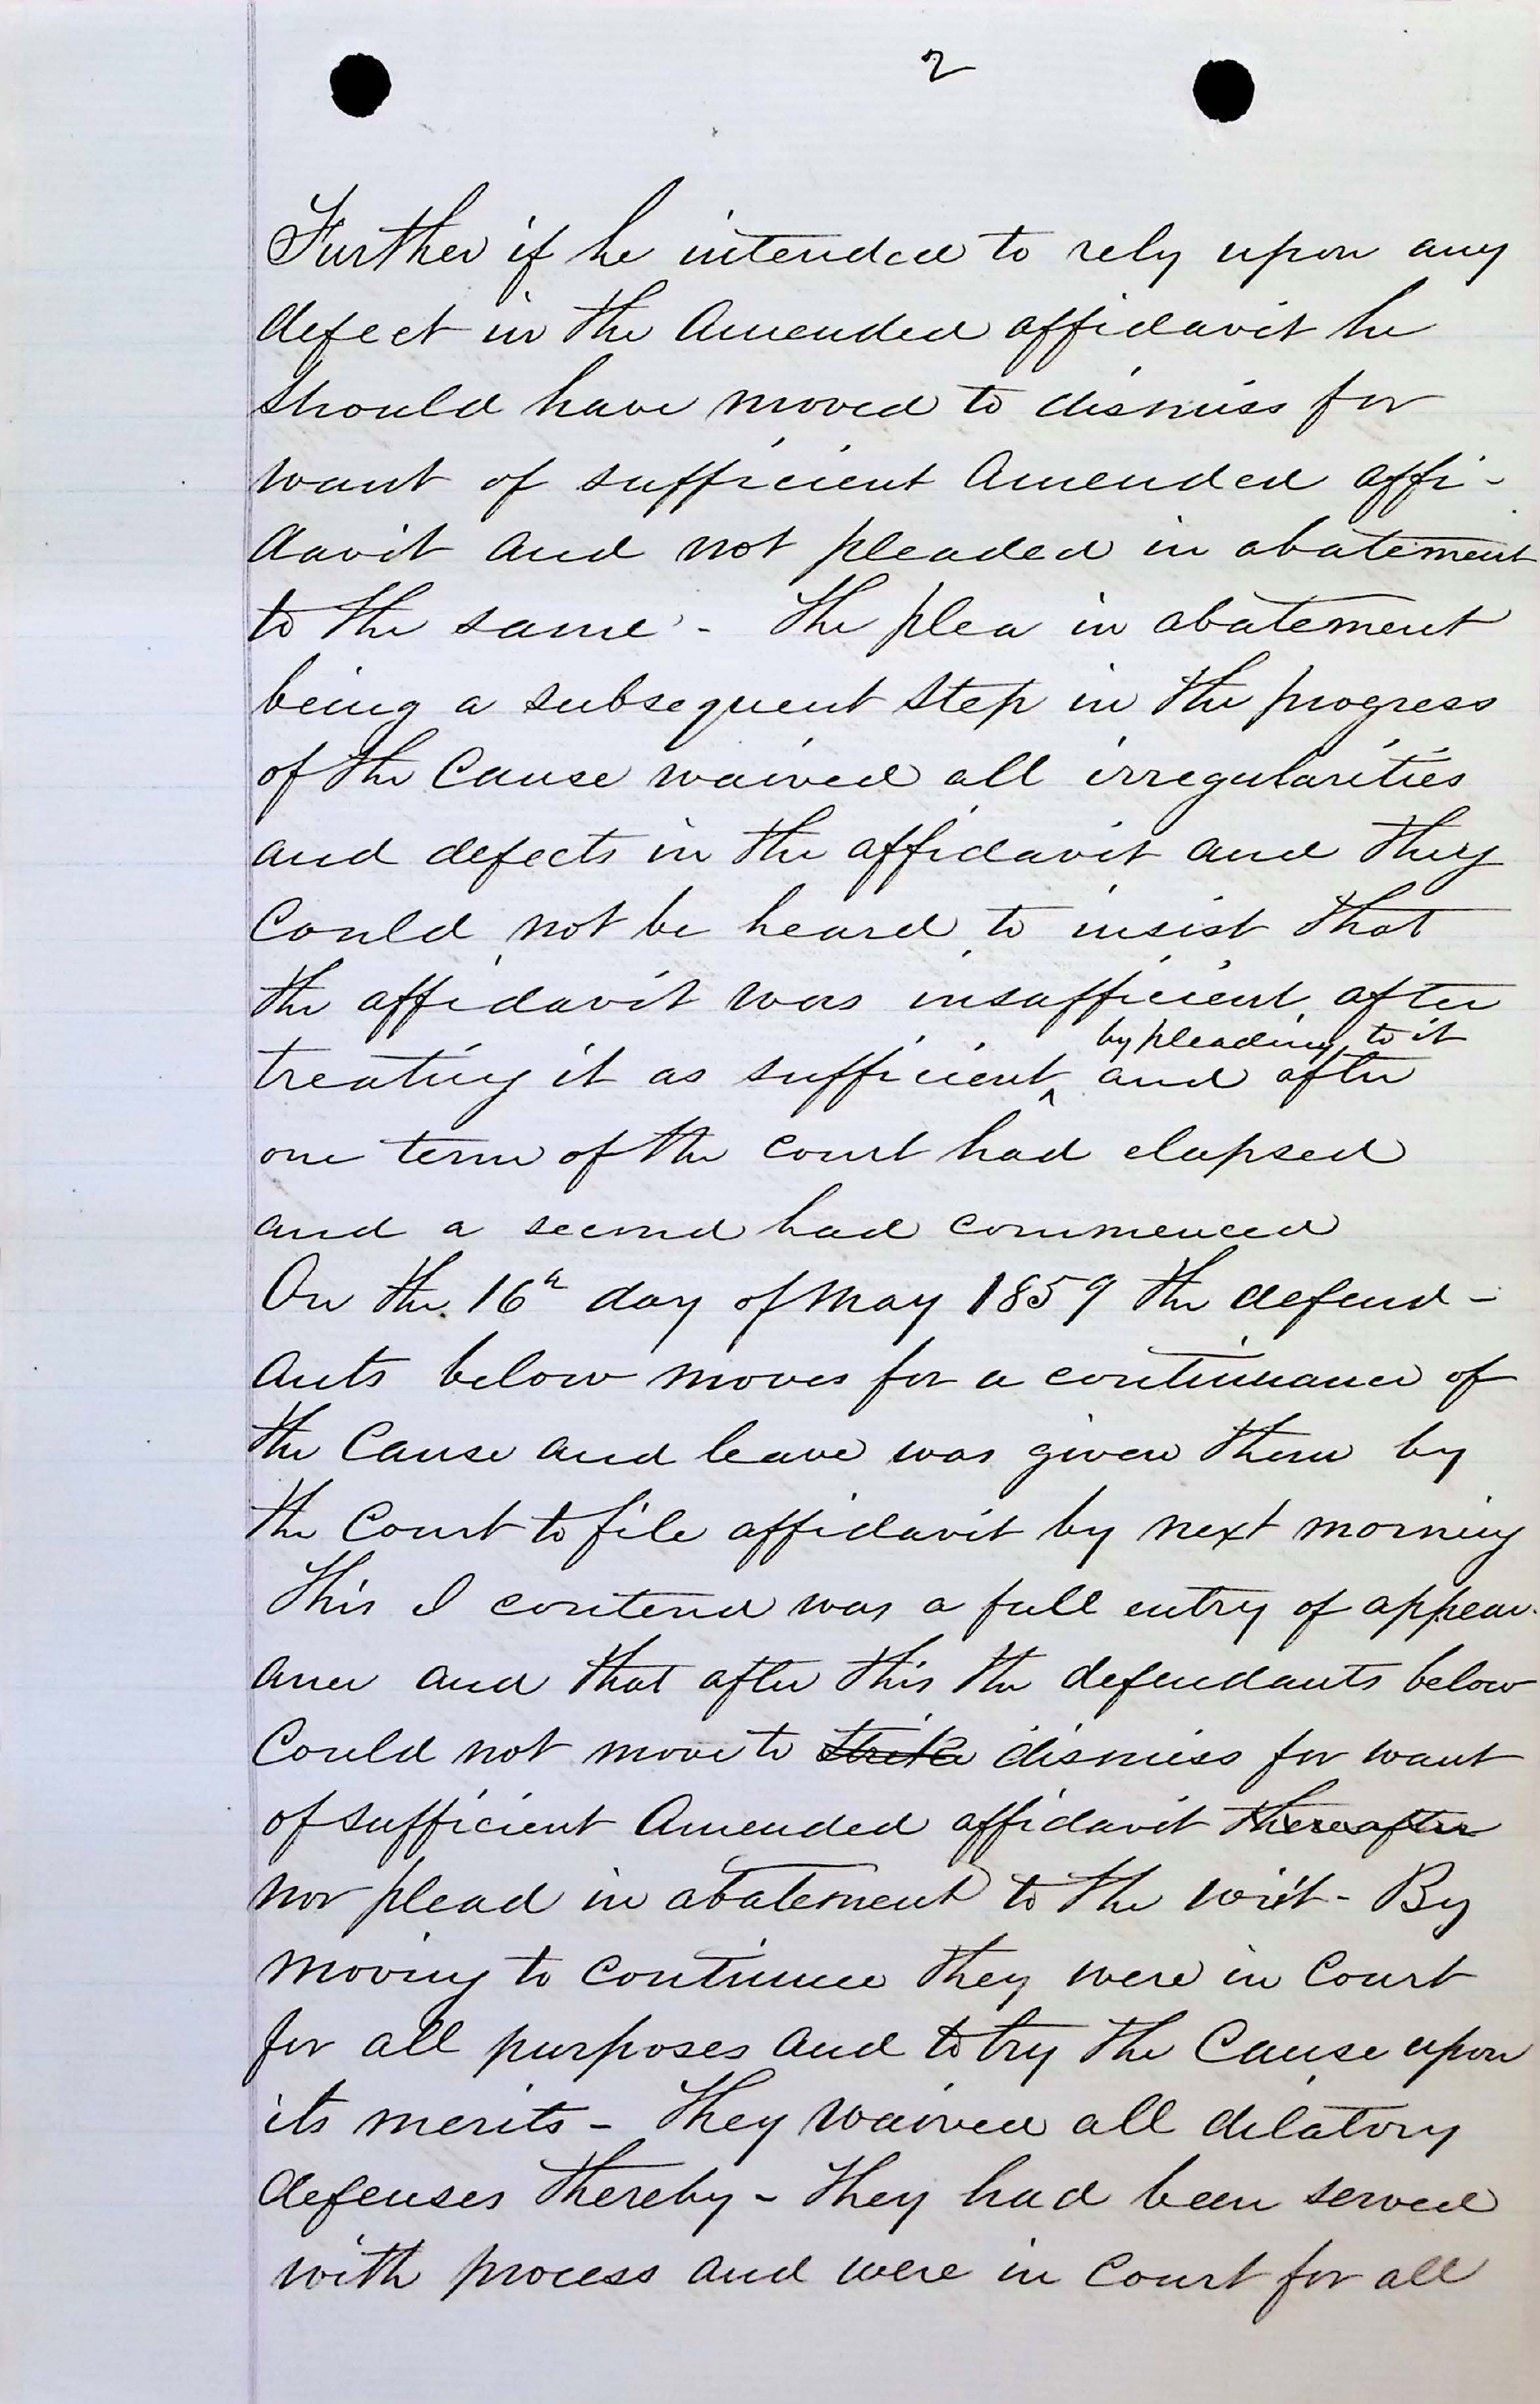 2
Further if he intended to rely upon any
defect in the Amended affidavit he
should have moved to dismiss for
want of sufficient Amended affi-
davit and not pleaded in abatement
to the same - The plea in abatement
being a subsequent step in the progress
of the Cause waived all irregularities
and defects in the affidavit and they
Could not be heard to insist that
the affidavit was insufficient after
by pleading to it
treating it as sufficient ^ and after
one term of the court had elapsed
and a second had commenced
On the 16h day of May 1859 the defend-
ants below moves for a continuance of
the Cause and leave was given them by
the Court to file affidavit by next morning
This I contend was a full entry of appear-
ance and that after this the defendants below
Could not move to strike dismiss for want
of sufficient Amended affidavit thereafter
nor plead in abatement to the writ - By
moving to Continue they were in Court
for all purposes and to try the Cause upon
its merits - They waived all dilatory
defenses thereby - They had been served
with process and were in Court for all